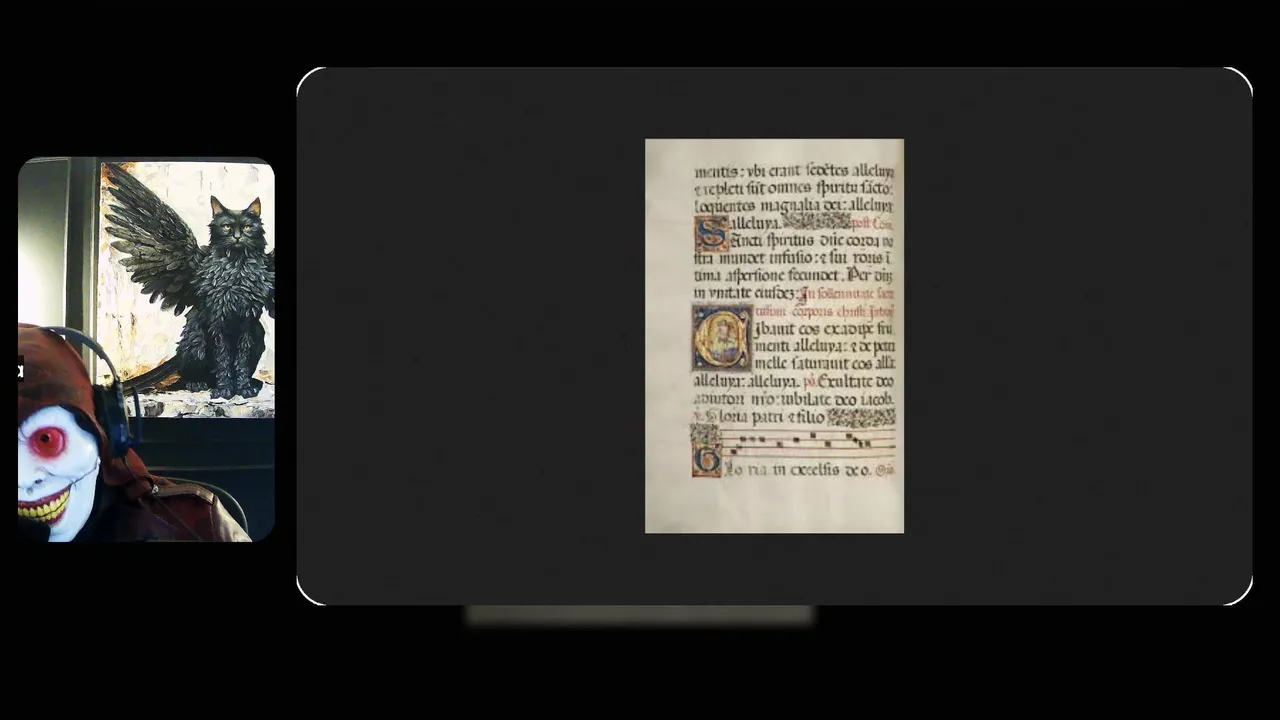 a
mentis: vbi erant sedētes alleluya
⁊ repleti sūt omnes spiritu sācto:
loquentes magnalia dei: alleluya
alleluya. post Com
Sancti spiritus dn̄e corda no
stra mundet infusio: ⁊ sui roris ī
tima aspersione fecundet. Per dn̄
in vnitate eiusdez: In sollennitate sacra
tissimi corporis christi Introi
Cibauit eos ex adipe fru
menti alleluya: ⁊ de petra
melle saturauit eos alla
alleluya: alleluya. ps. Exultate deo
adiutori nr̄o: iubilate deo iacob.
v. Gloria patri ⁊ filio
Glo ria in excelsis deo.